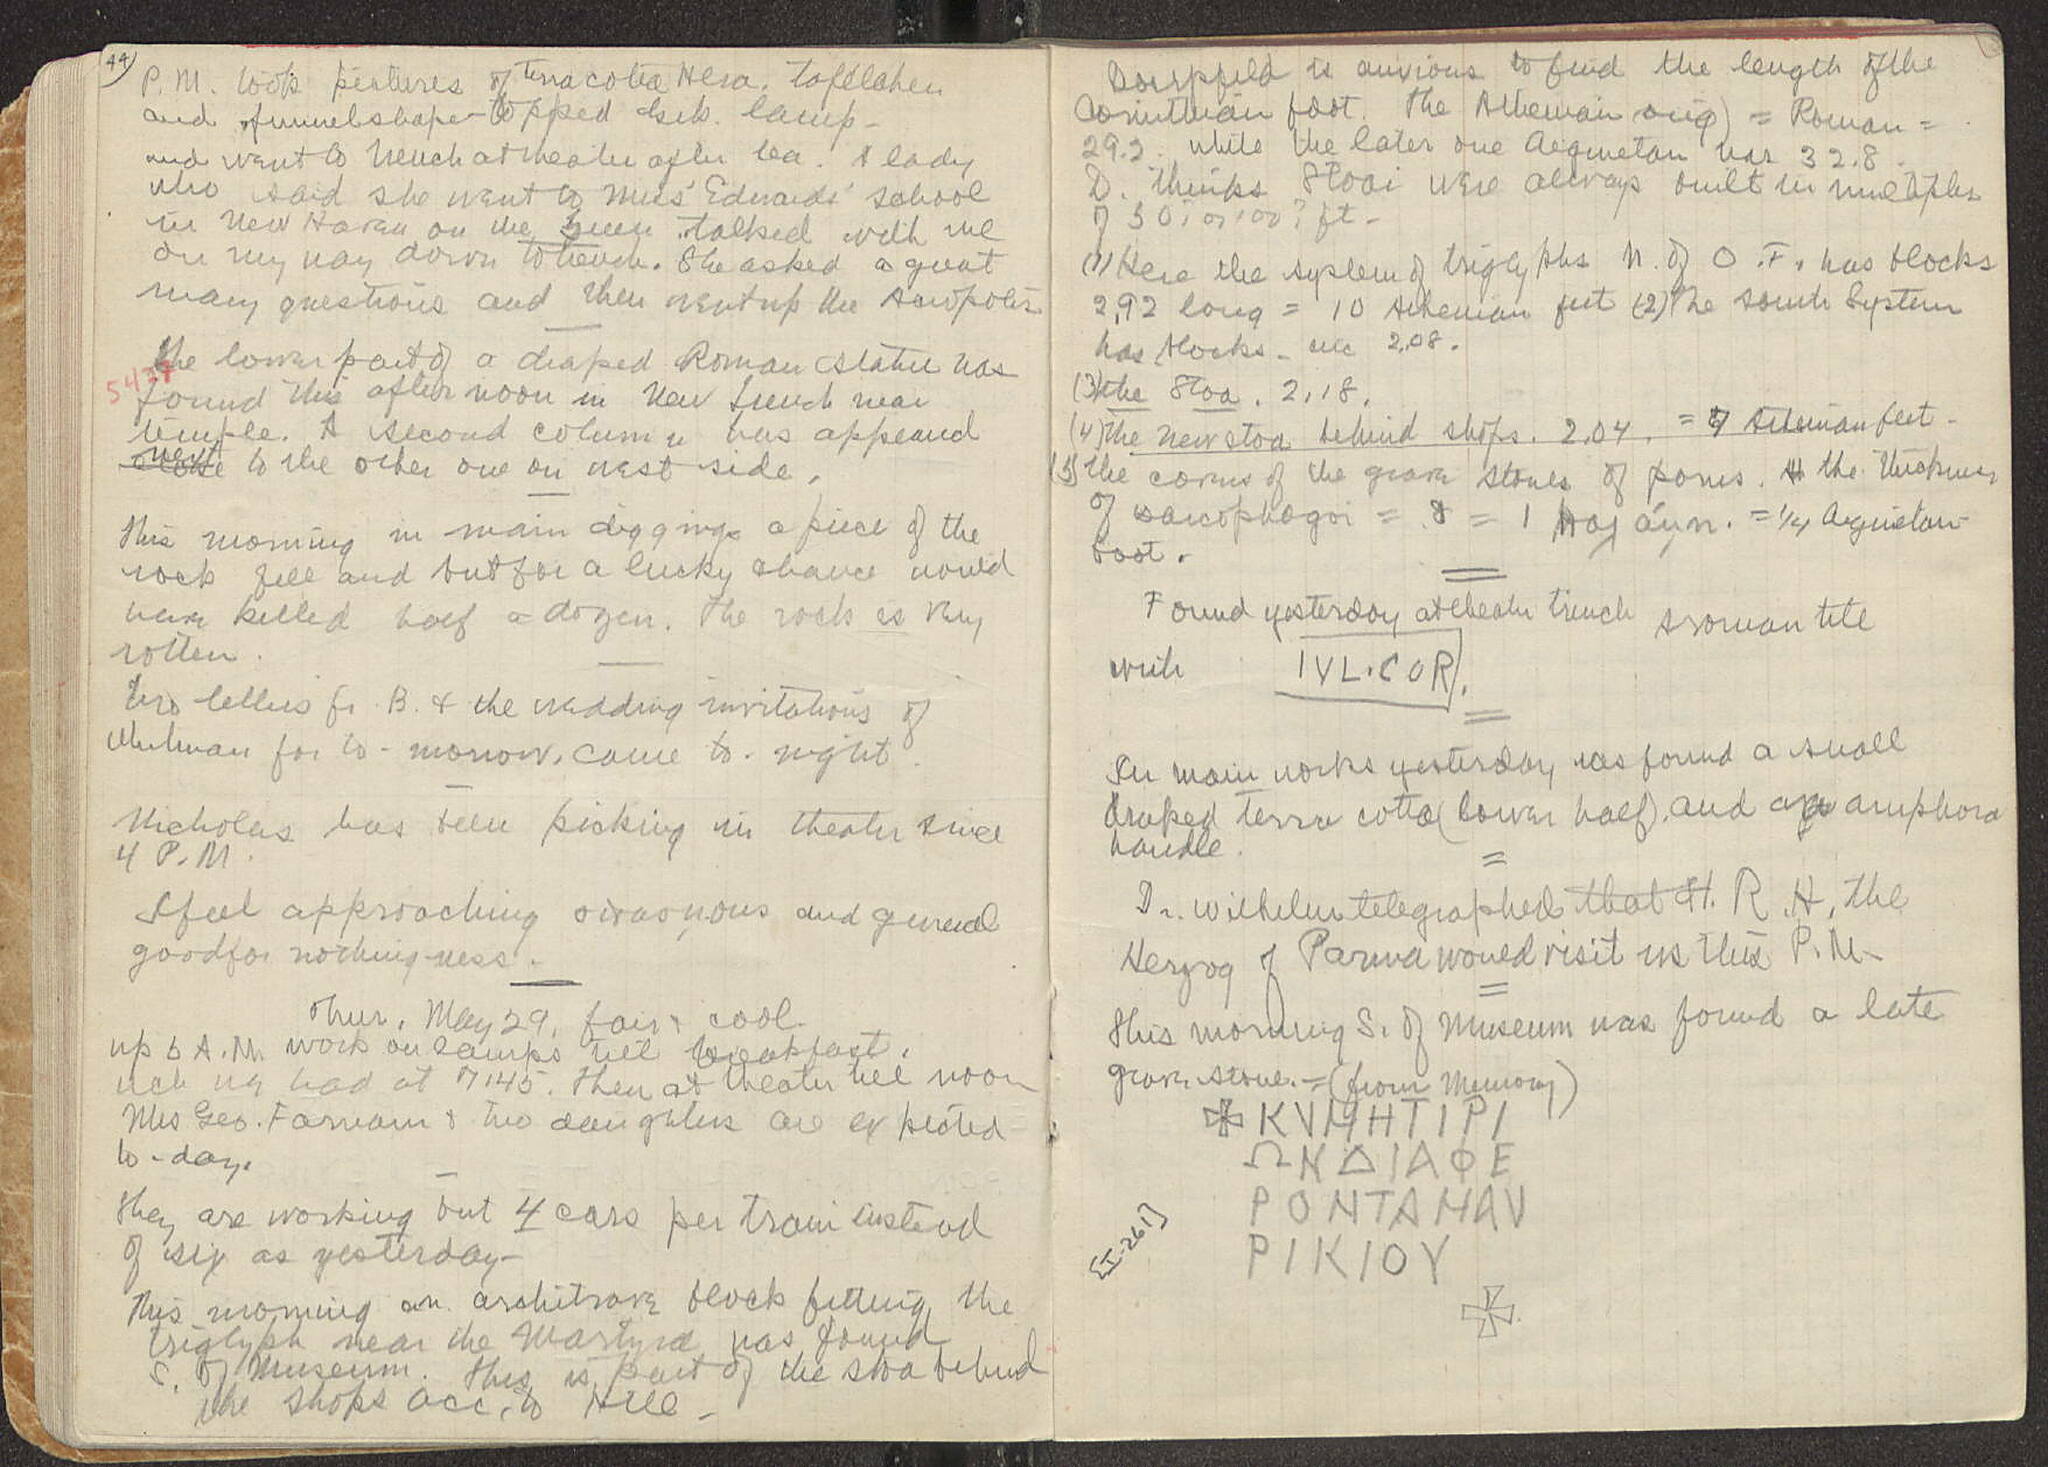 44)
P.M. took pictures of terracotta Hera, täfelchen
and funnelshape-topped Gk. lamp -
and went to trench at theater after tea. A lady
who said she went to Miss Edwards' school
in New Haven on the green talked with me
on my way down to trench. She asked a great
many questions and then went up the Acropolis
The lower part of a draped Roman statue was
found this afternoon in new trench near
temple. A second column has appeared
next to the other one on west side.
This morning in main diggings a piece of the
rock fell and but for a lucky chance would
have killed half a dozen. The rock is very
rotten.
Two letters fr. B. & the wedding invitations of
for to-morrow, came to-night.
Nicholas has been picking in theater since
4 P.M.
I feel approaching and general
goodfornothingness.
Thur. May 29. fair & cool.
up 5 A.M. work on lamps till breakfast.
wch we had at 7:45. Then at theater till noon
Mrs Geo. Farnam & two daughters are expected
to-day.
They are working but 4 cars per train instead
of six as yesterday-
This morning an architrave block fitting the
triglyph near the was found
S. of Museum. This is part of the stoa behind
the shops acc. to Hill -
Doerpfeld is anxious to find the length of the
Corinthian foot. The Athenian orig) = Roman =
29.2. while the later one Aeginetan was 32.8.
D. thinks Stoai were always built in multiples
of 50? or 100? ft-
(1) Here the system of triglyphs N. of O.F. has blocks
2,92 long = 10 Athenian feet (2) The South System
has blocks - 2.08.
(3) the Stoa. 2,18.
(4) The new stoa behind shops. 2.04. = 7 Athenian feet-
(5) the covers of the grave stones of poros. the thickness
of sarcophagoi = 8 = 1 = 1/4 Aeginetan
foot.
Found yesterday at theater trench a roman tile
with IVL.COR.
In main works yesterday was found a small
draped terra cotta (lower half) and an amphora
handle.
Dr. Wilhelm telegraphed that H.R.H. the
Herzog of Parma would visit us this P.M-
This morning S. of Museum was found a late
grave stone. - (from Memory)
✠ ΚVΜΗΤΙΡΙ
ΩΝΔΙΑΦΕ
ΡΟΝΤΑΜΑV
ΡΙΚΙΟΥ
[I-261]